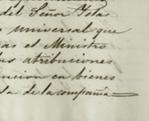 del Señor Yola
universal que
as el Ministro
as atribuciones
uncion en bienes
da de la compañia